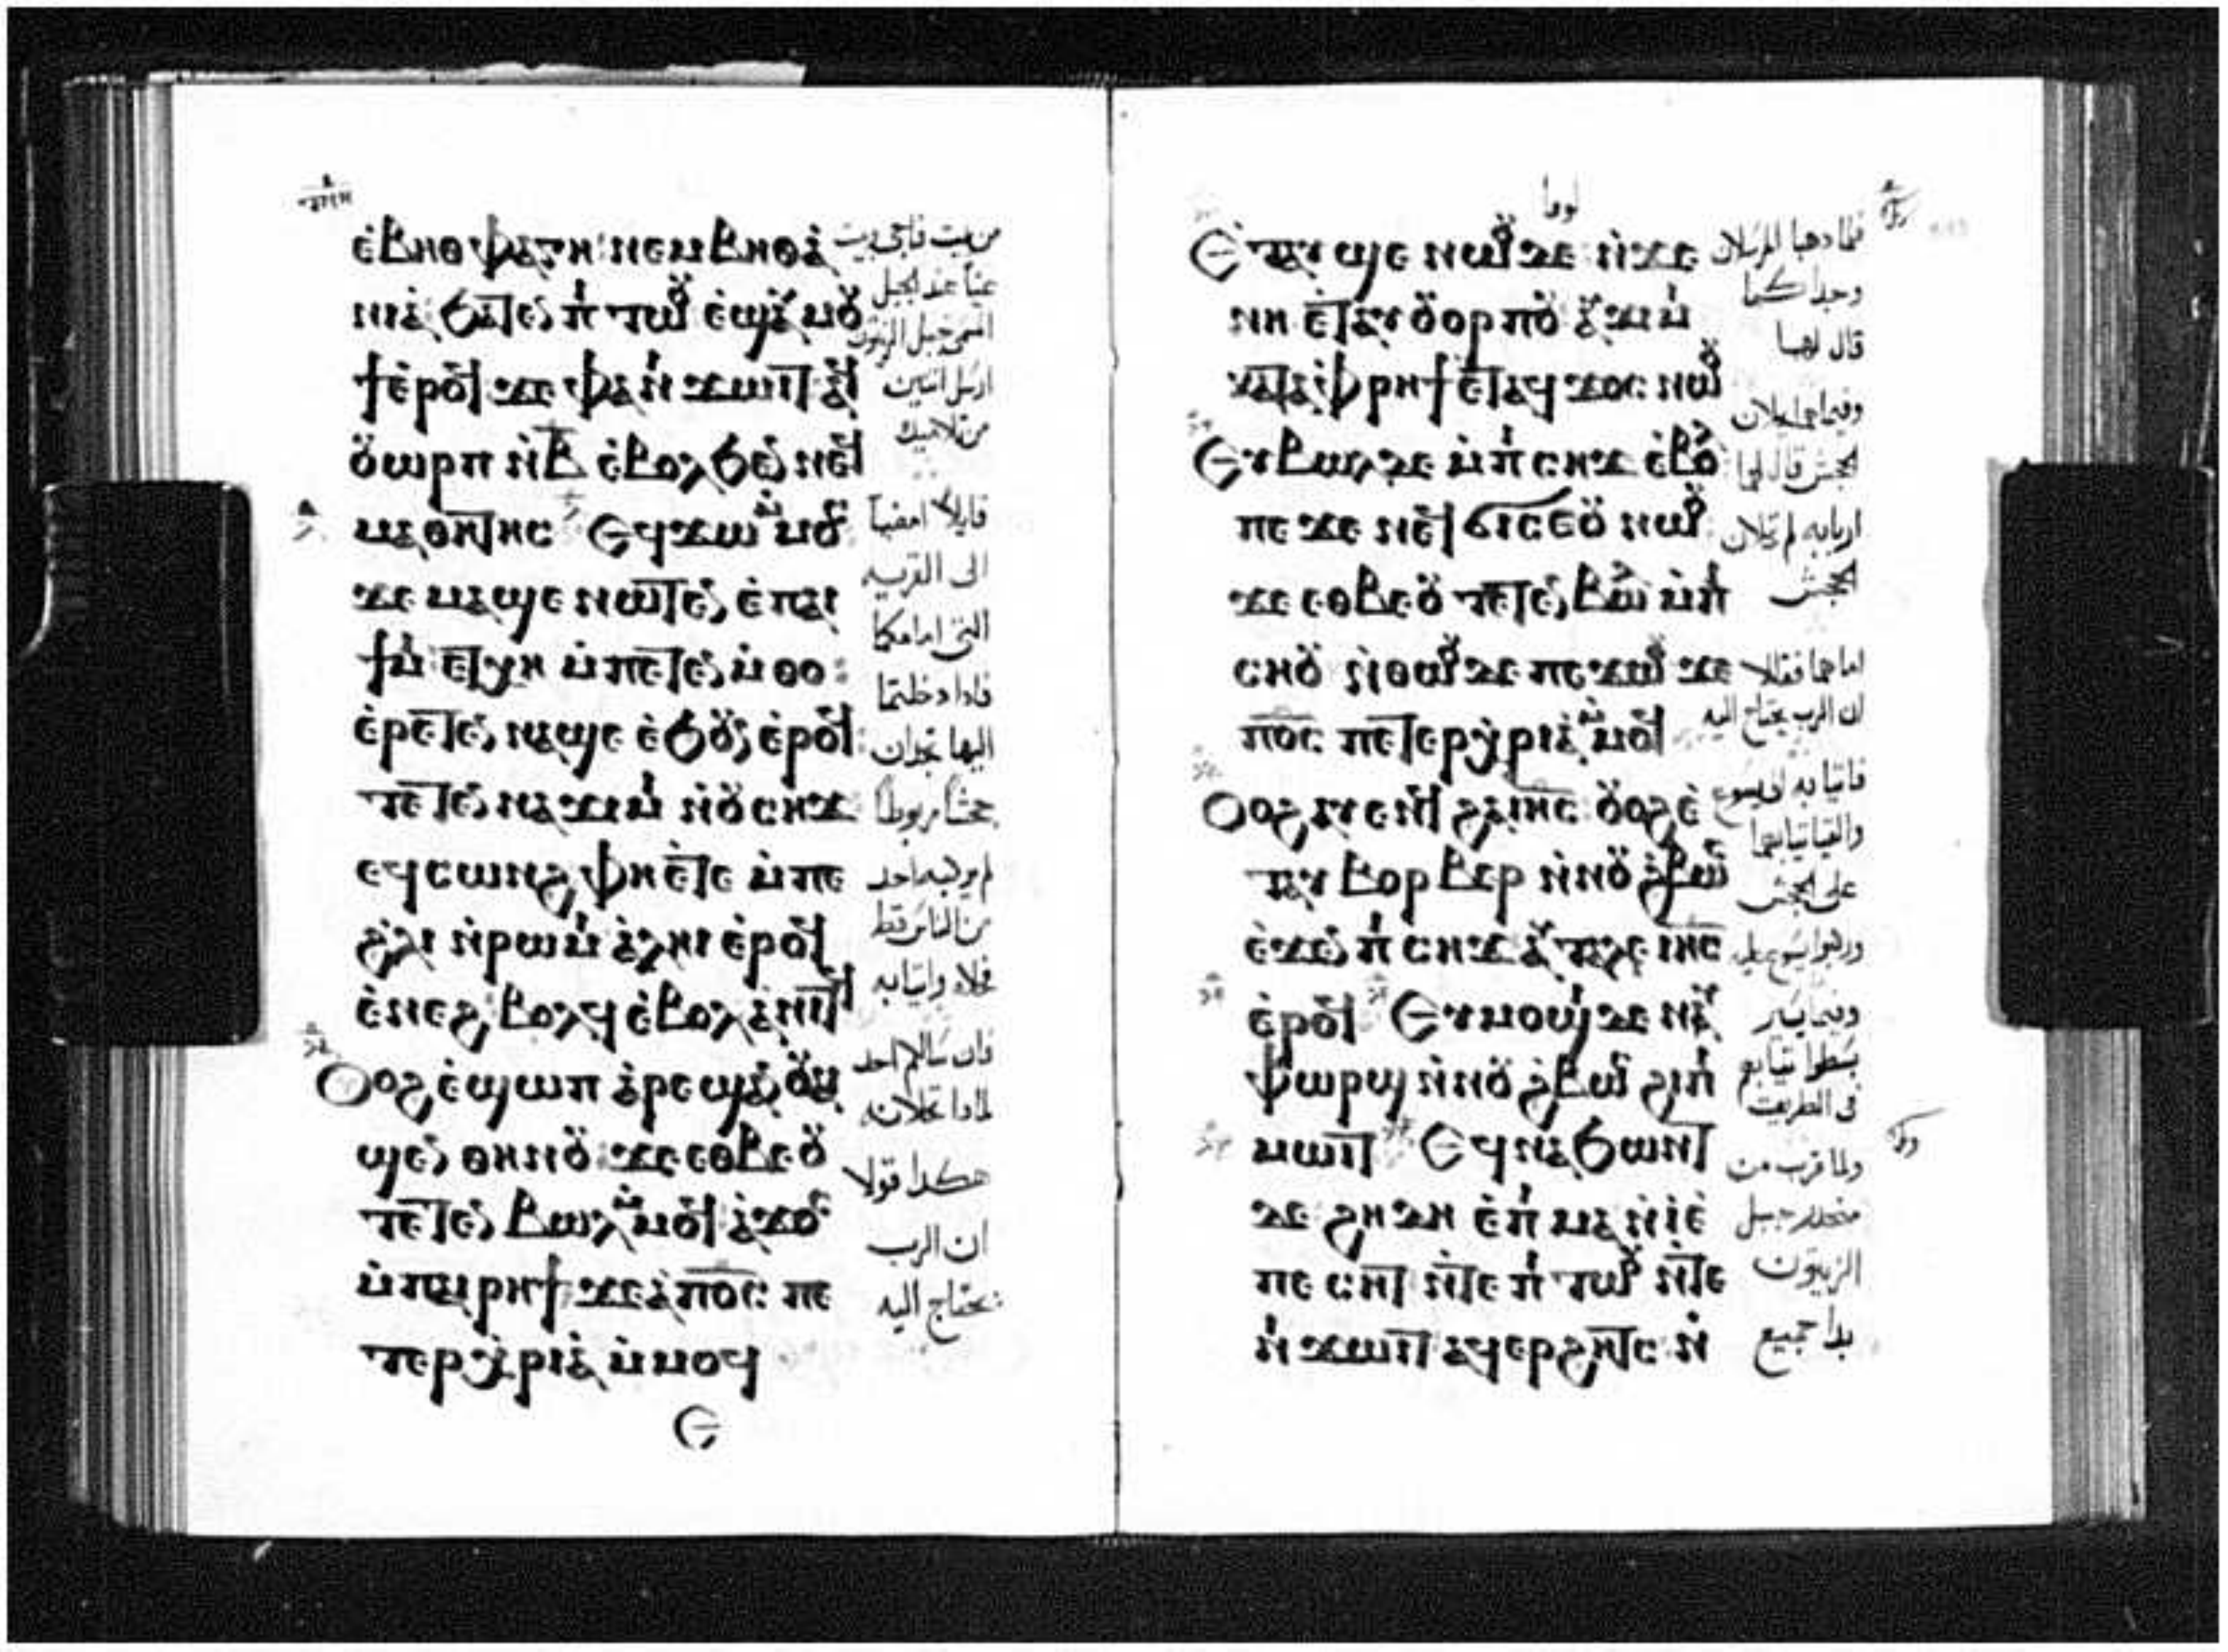 ⲉ̀ⲃⲏⲑⲫⲁⲅⲏ ⲛⲉⲙ ⲃⲏⲑⲁ
ⲛⲓⲁ ϧⲁⲧⲉⲛ ⲡⲓⲧⲱⲟⲩ ⲉ̀ϣⲁⲩⲙⲟⲩ
ϯ ⲉ̀ⲣⲟϥ ϫⲉ ⲫⲁ ⲛⲓϫⲱⲓⲧ ⲁϥ
ⲟⲩⲱⲣⲡ ⲛ̀ⲃ̅ ⲉ̀ⲃⲟⲗϧⲉⲛ ⲛⲉϥ
ⲙⲁⲑⲏⲧⲏⲥ ⲉϥϫⲱ ⲙ̀ⲙⲟⲥ
ϫⲉ ⲙⲁϣⲉ ⲛⲱⲧⲉⲛ ⲉ̀ⲡⲁⲓ
ϯⲙⲓ ⲉⲧⲭⲏ ⲙ̀ⲡⲉⲧⲉⲛⲙ̀ⲑⲟ
ⲉ̀ⲣⲉⲧⲉⲛ ⲛⲁϣⲉ ⲉ̀ϧⲟⲩⲛ ⲉ̀ⲣⲟϥ
ⲧⲉⲧⲉⲛ ⲛⲁϫⲓⲙⲓ ⲛ̀ⲟⲩⲥⲏϫ
ⲉϥⲥⲱⲛϩ ⲫⲏ ⲉ̀ⲧⲉ ⲙ̀ⲡⲉ
ϩⲗⲓ ⲛ̀ⲣⲱⲙⲓ ⲁⲗⲏⲓ ⲉ̀ⲣⲟϥ
ⲉ̀ⲛⲉϩ ⲃⲟⲗϥ ⲉ̀ⲃⲟⲗ ⲁ̀ⲛⲓⲧϥ
ⲟⲩⲟϩ ⲉ̀ϣⲱⲡ ⲁ̀ⲣⲉϣⲁⲛ ⲟⲩⲁⲓ
ϣⲉⲛ ⲑⲏⲛⲟⲩ ϫⲉ ⲉⲑⲃⲉⲟⲩ
ⲧⲉⲧⲉⲛ ⲃⲱⲗ ⲙ̀ⲙⲟϥ ⲁ̀ϫⲟⲥ
ⲙ̀ⲡⲁⲓⲣⲏϯ ϫⲉ ⲁ̀ⲡ̅ⲟ̅ⲥ̅ ⲡⲉ
ⲧⲉⲣⲭ̀ⲣⲓⲁ ⲙ̀ⲙⲟϥ
ⲉ
من بيت فاجي وبيت
عنيا عند الجبل
المسمى جبل الزيتون
ارسل اثنين
من تلاميذ
قايلا امضيا
الى القريه
التى امامكما
فادا دخلتما
اليها تجدان
جحشا مربوطا
لم يركبه احد
من الناس قط
فحلاه وايتيا به
فان سالكم احد
لمادا تحلانه
هكدا قولا
ان الرب
يحتاج اليه
لوقا
ⲉ̀ⲧⲁⲩϣⲉ ⲛⲱⲟⲩ ⲇⲉ ⲛ̀ϫⲉ
ⲛⲏ ⲉ̀ⲧⲁⲩⲟⲩⲟⲣⲡⲟⲩ ⲁⲩϫⲓⲙⲓ
ⲕⲁⲧⲁ ⲫ̀ⲣⲏϯ ⲉ̀ⲧⲁϥϫⲟⲥ ⲛⲱⲟⲩ
ⲉⲩⲃⲱⲗ ⲇⲉ ⲙ̀ⲡⲓⲥⲏϫ ⲉ̀ⲃⲟⲗ
ⲡⲉϫⲉ ⲛⲉϥϭⲓⲥⲉⲩ ⲛⲱⲟⲩ
ϫⲉ ⲉⲑⲃⲉⲟⲩ ⲧⲉⲧⲉⲛ ⲃⲱⲗ ⲙ̀ⲡⲓ
ⲥⲏϫ ⲛ̀ⲑⲱⲟⲩ ⲇⲉ ⲡⲉϫⲱⲟⲩ ϫⲉ
ⲡ̅ⲟ̅ⲥ̅ ⲡⲉⲧⲉⲣⲭ̀ⲣⲓⲁ ⲙ̀ⲙⲟϥ
ⲟⲩⲟϩ ⲁⲩⲉⲛϥ ϩⲁ ⲓⲏ̅ⲥ̅ ⲟⲩⲟϩ ⲉ̀
ⲧⲁⲩⲃⲟⲣⲃⲉⲣ ⲛ̀ⲛⲟⲩϩ̀ⲃⲱⲥ
ⲉ̀ϫⲉⲛ ⲡⲓⲥⲏϫ ⲁⲩⲧⲁⲗⲉ ⲓⲏ̅ⲥ̅
ⲉ̀ⲣⲟϥ ⲉⲩⲙⲟϣⲓ ⲇⲉ ⲛⲁⲩ
ⲫⲱⲣϣ ⲛ̀ⲛⲟⲩϩ̀ⲃⲱⲥ ϩⲓ ⲡⲓ
ⲙⲱⲓⲧ ⲉϥⲛⲁϧⲱⲛⲧ
ⲇⲉ ϩⲏⲇⲏ ⲉ̀ⲡⲓⲙⲁ ⲛ̀ⲓ̀ⲉ̀
ⲡⲉⲥⲏⲧ ⲛ̀ⲧⲉ ⲡⲓⲧⲱⲟⲩ ⲛ̀ⲧⲉ
ⲛⲓϫⲱⲓⲧ ⲁϥⲉⲣϩⲏⲧⲥ ⲛ̀
فلما دهبا المرسلان
وجدا كما
قال لهما
وفيما هما يحلان
الجحش قال لهما
اربابه لم تحلان
الجحش
اما هما فقالا
ان الرب يحتاج اليه
فاتيا به الى يسوع
والقيا ثيابهما
على الجحش
وركبوا يسوع عليه
وفيما يسير
بسطوا ثيابهم
فى الطريق
ولما قرب من
منحدر جبل
الزيتون
بدا جميع